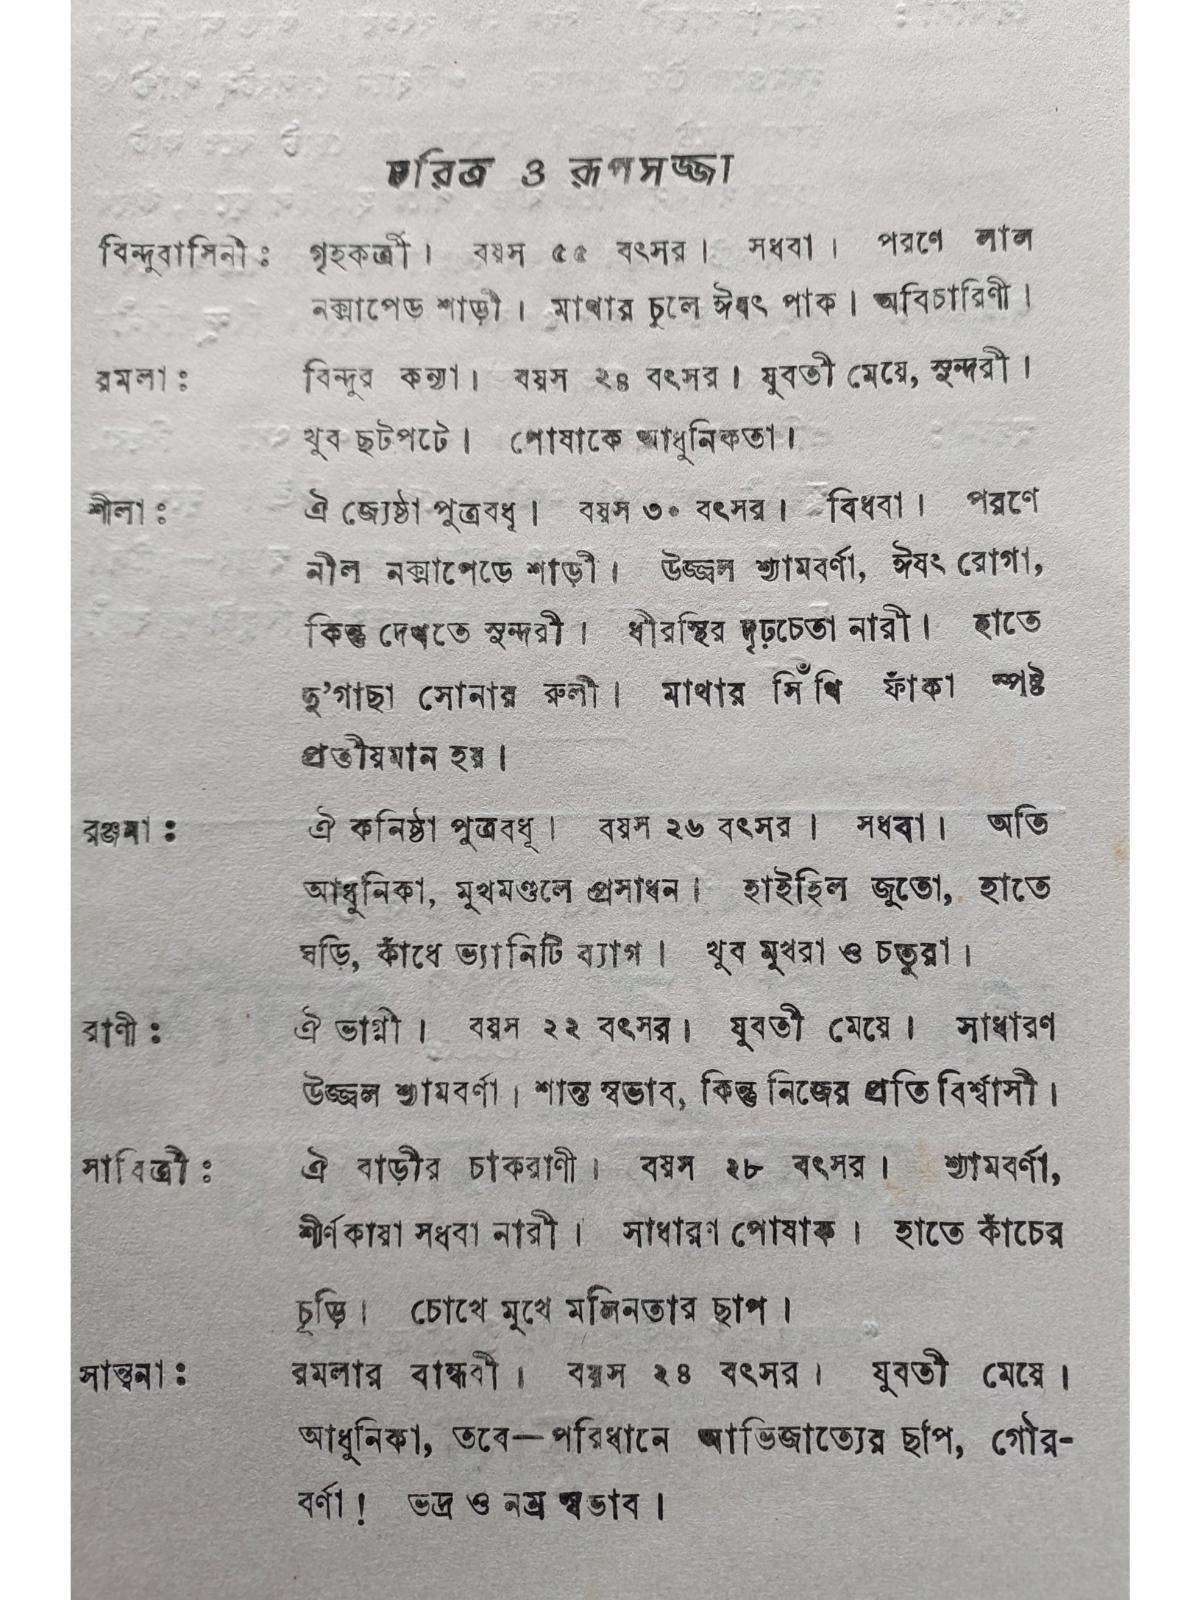 চরিত্র ও রূপসজ্জা
বিন্দুবাসিনী : গৃহকর্ত্রী। বয়স ৫৫ বৎসর। সধবা। পরণে লাল
নক্সাপেড় শাড়ী। মাথার চুলে ঈষৎ পাক। অবিচারিণী।
রমলা : বিন্দুর কন্যা। বয়স ২৪ বৎসর। যুবতী মেয়ে, সুন্দরী।
খুব ছটপটে। পোষাকে আধুনিকতা।
শীলা : ঐ জ্যেষ্ঠা পুত্রবধূ। বয়স ৩০ বৎসর। বিধবা। পরণে
নীল নক্সাপেড়ে শাড়ী। উজ্জ্বল শ্যামবর্ণা, ঈষৎ রোগা,
কিন্তু দেখতে সুন্দরী। ধীরস্থির দৃঢ়চেতা নারী। হাতে
দু’গাছা সোনার রুলী। মাথার সিঁথি ফাঁকা স্পষ্ট
প্রতীয়মান হয়।
রঞ্জনা : ঐ কনিষ্ঠা পুত্রবধূ। বয়স ২৬ বৎসর। সধবা। অতি
আধুনিকা, মুখমণ্ডলে প্রসাধন। হাইহিল জুতো, হাতে
ঘড়ি, কাঁধে ভ্যানিটি ব্যাগ। খুব মুখরা ও চতুরা।
রাণী : ঐ ভাগ্নী। বয়স ২২ বৎসর। যুবতী মেয়ে। সাধারণ
উজ্জ্বল শ্যামবর্ণা। শান্ত স্বভাব, কিন্তু নিজের প্রতি বির্শ্বাসী।
সাবিত্রী : ঐ বাড়ীর চাকরাণী। বয়স ২৮ বৎসর। শ্যামবর্ণা,
শীর্ণকায়া সধবা নারী। সাধারণ পোষাক। হাতে কাঁচের
চূড়ি। চোখে মুখে মলিনতার ছাপ।
সান্ত্বনা : রমলার বান্ধবী। বয়স ২৪ বৎসর। যুবতী মেয়ে।
আধুনিকা, তবে—পরিধানে আভিজাত্যের ছাপ, গৌর-
বর্ণা! ভদ্র ও নম্র স্বভাব।